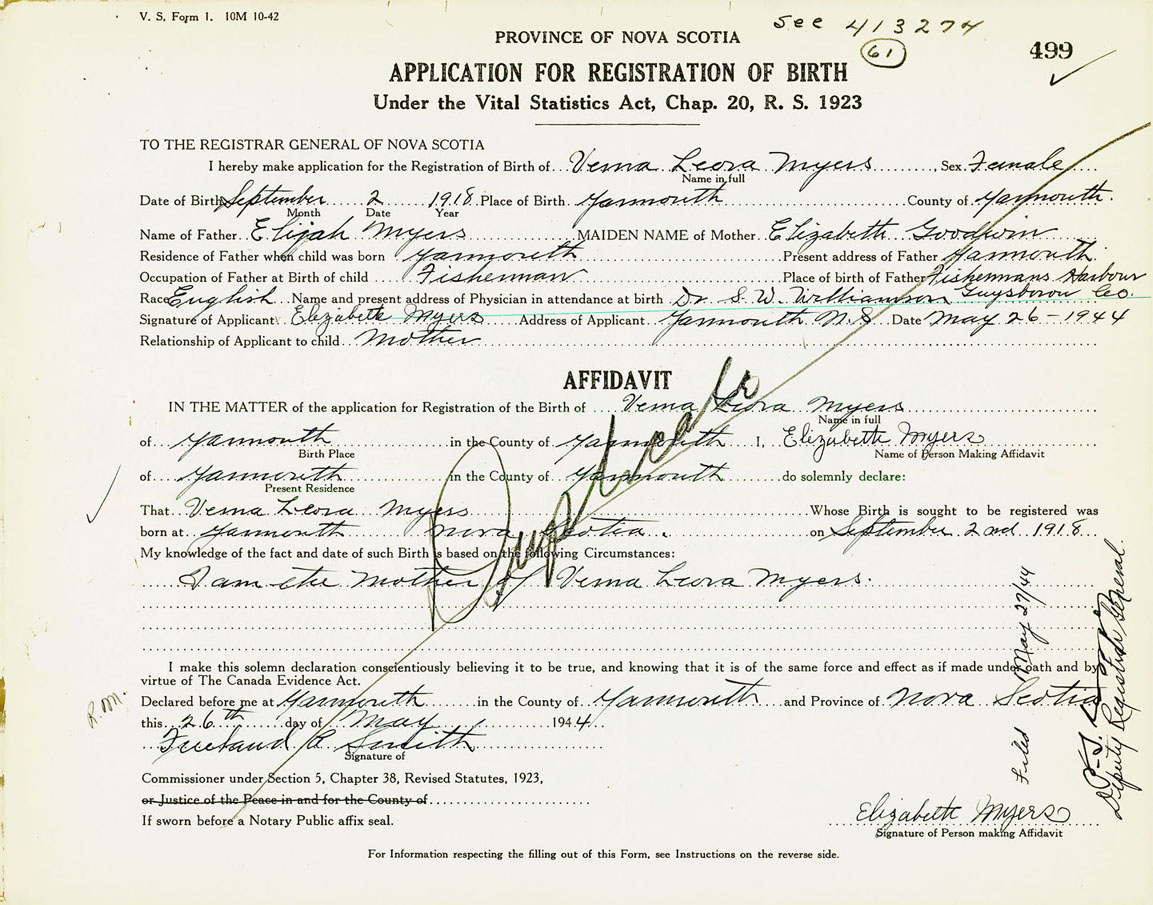 V. S. Form 1. 10M 10-42
See 413274
61
499
PROVINCE OF NOVA SCOTIA
APPLICATION FOR REGISTRATION OF BIRTH
Under the Vital Statistics Act, Chap. 20, R. S. 1923
TO THE REGISTRAR GENERAL OF NOVA SCOTIA
I hereby make application for the Registration of Birth of Verna Leora Myers, Sex Female
Name in full
Date of Birth September 2 1918 Place of Birth Yarmouth County of Yarmouth.
Month Date Year
Name of Father Elijah Myers MAIDEN NAME of Mother Elizabeth Goodwin
Residence of Father when child was born Yarmouth Present address of Father Yarmouth.
Occupation of Father at Birth of child Fisherman Place of birth of Father Fishermans Harbour
Race English Name and present address of Physician in attendance at birth Dr. S. W. Williamson Guysboro Co.
Signature of Applicant Elizabeth Myers Address of Applicant Yarmouth N.S Date May 26 - 1944
Relationship of Applicant to child Mother
AFFIDAVIT
Duplicate
IN THE MATTER of the application for Registration of the Birth of Verna Leora Myers
Name in full
of Yarmouth in the County of Yarmouth I, Elizabeth Myers
Birth Place Name of Person Making Affidavit
of Yarmouth in the County of Yarmouth do solemnly declare:
Present Residence
That Verna Leora Myers Whose Birth is sought to be registered was
born at Yarmouth Nova Scotia. on September 2nd 1918
My knowledge of the fact and date of such Birth is based on the following Circumstances:
I am the Mother of Verna Leora Myers.
I make this solemn declaration conscientiously believing it to be true, and knowing that it is of the same force and effect as if made under oath and by
virtue of The Canada Evidence Act.
Declared before me at Yarmouth in the County of Yarmouth and Province of Nova Scotia
R.M.
this 26th day of May 1944
Smith
Signature of
Commissioner under Section 5, Chapter 38, Revised Statutes, 1923,
or Justice of the Peace in and for the County of
If sworn before a Notary Public affix seal.
Elizabeth Myers
Signature of Person making Affidavit
For Information respecting the filling out of this Form, see Instructions on the reverse side.
Filed May 27/44
Deputy Registrar General.